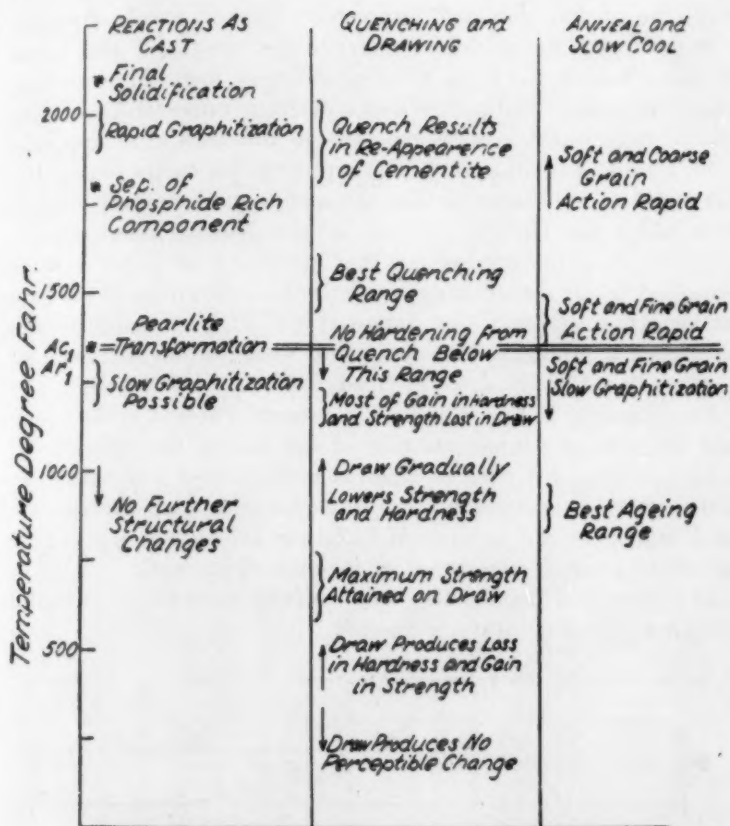 REACTIONS AS
CAST
Final
Solidification
Rapid Graphitization
Sep. of
Phosphide Rich
Component
Pearlite
Transformation
Slow Graphitization
Possible
No Further
Structural
Changes
QUENCHING AND
DRAWING
Quench Results
in Re-Appearence
of Cementite
Best Quenching
Range
No Hardening from
Quench Below
This Range
Most of Gain in Hardness
and Strength Lost in Draw
Draw Gradually
Lowers Strength
and Hardness
Maximum Strength
Attained on Draw
Draw Produces Loss
in Hardness and Gain
in Strength
Draw Produces No
Perceptible Change
ANNEAL AND
SLOW COOL
Soft and Coarse
Grain
Action Rapid
Soft and Fine Grain
Action Rapid
Soft and Fine Grain
Slow Graphitization
Best Ageing
Range
Temperature Degree Fahr.
2000
1500
Ac1
Ar1
1000
500